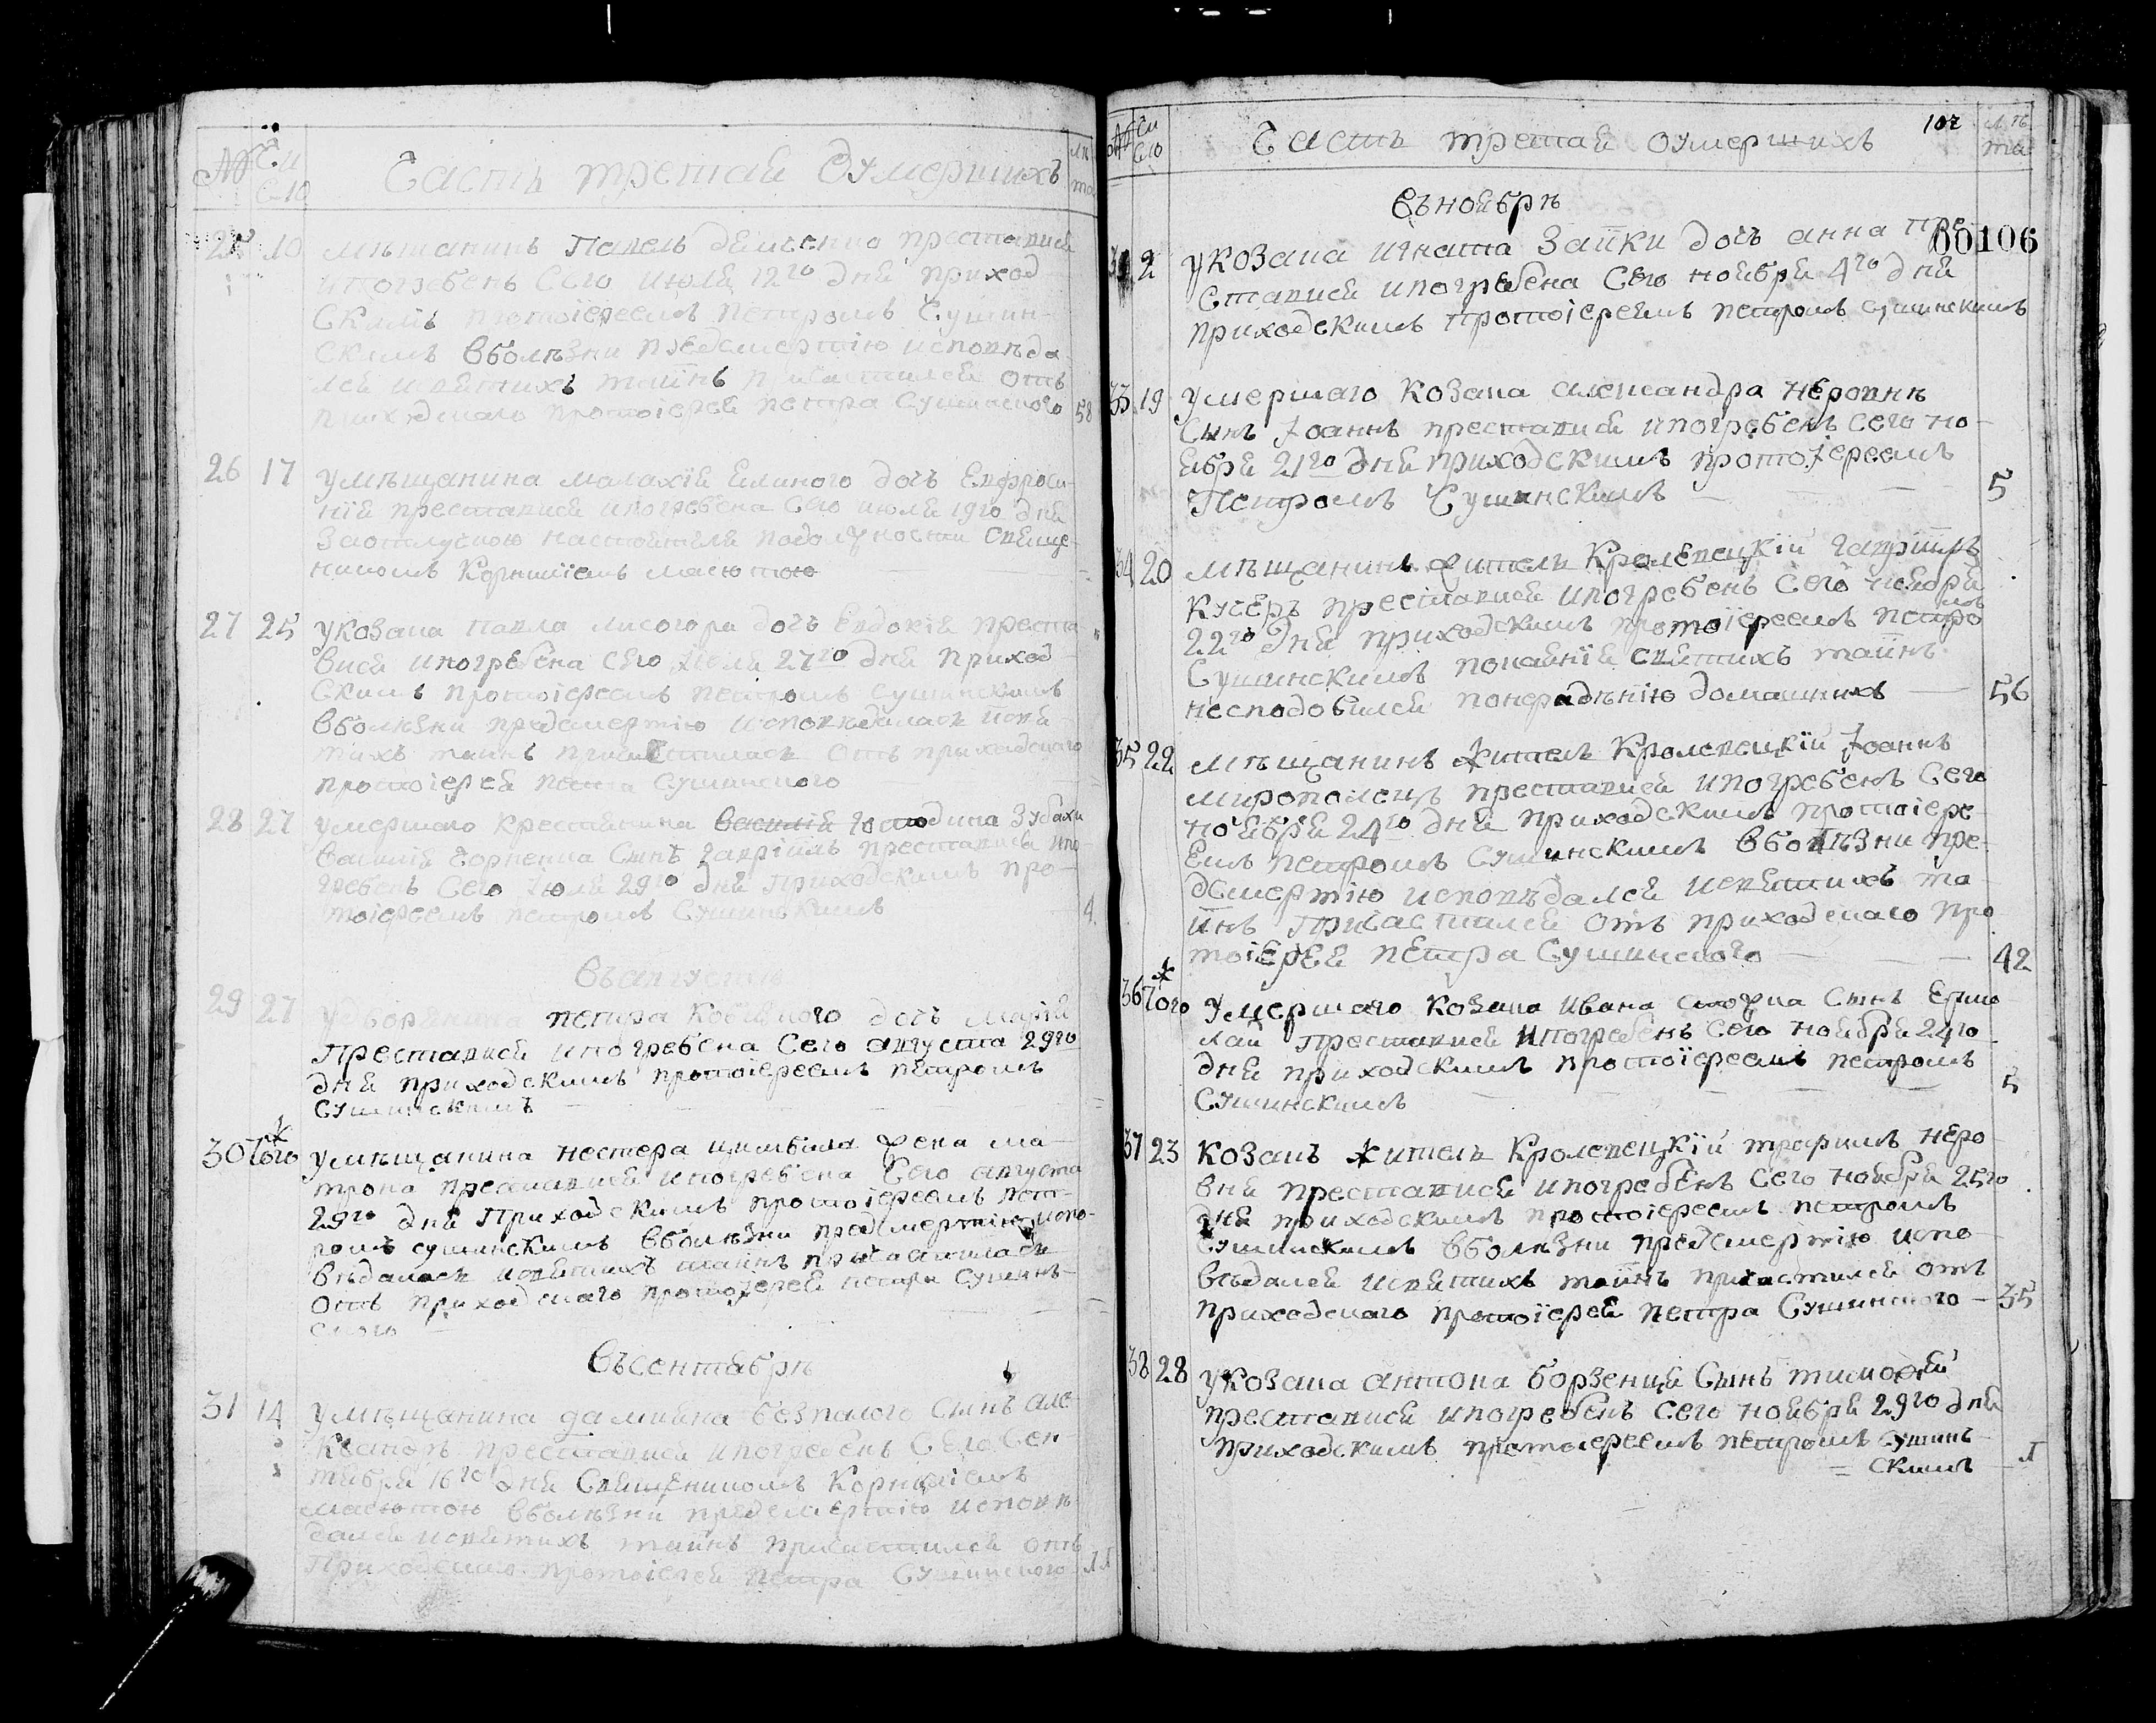 № Чи
сло Часть третая Оумершихъ лѣ
та
25 10 мѣщанинъ Павелъ демченко преставися
ипогребенъ Сего июля 12го дня приход
Скимъ протоіереемъ петромъ Сушин
Скимъ вболѣзни предсмертію исповѣда
лся исвятихъ таинъ причастился отъ
приходскаго протоіерея петра Сушинского 58
26 17 умѣщанина малахія дочъ Евфроси
нія преставися ипогребена Сего июля 19го дня
заотлучкою настоятеля подолжности Свяще
никомъ Корниліемъ масютою
27 25 укозака павла лисогора дочъ Евдокія преста
вися ипогребена Сего июля 27го дня приход
Скимъ протоіереемъ петромъ Сушинскимъ
вболѣзни предсмертію исповѣдалася исвя
тихъ таинъ причастилася отъ приходскаго
протоіерея петра Сушинского
28 27 умершаго крестянина василія господина Зубахи
василія чорненка Синъ гавріилъ преставися ипо
гребенъ Сего июля 29го дня приходскимъ про
тоіереемъ петромъ Сушинскимъ 4
въавгустѣ
29 27 удворянина петра дочъ марія
преставися ипогребена Сего августа 29го
дня приходскимъ протоіереемъ петромъ
Сушинскимъ
30 тогож умѣщанина нестера цимбала жена ма
трона преставися ипогребена Сего августа
29го дня приходскимъ протоіереемъ пет
ромъ сушинскимъ вболѣзни предсмертію испо
вѣдалася исвятихъ таинъ причастилася
отъ приходскаго протоіерея петра Сушин
ского
Въсентябрѣ
31 14 умѣщанина дамияна безпалого Синъ але
ксѣй преставися ипогребенъ Сего Сен
тября 16го дня Священикомъ Корниліемъ
масютою вболѣзни предсмертію исповѣ
дался исвятихъ таинъ причастился отъ
приходскаго протоіерея петра Сушинского
№ Чи
сло Часть третая оумершихъ 107 лѣ
та
Въноябрѣ
00106
2 укозака игната Заики дочъ анна пре
ставися ипогребена Сего ноября 4го дня
приходскимъ протоіереемъ петромъ сушинскимъ
33 19 умершаго козака александра неровнѣ
Синъ Іоаннъ преставися ипогребенъ Сего но
ября 21го дня приходскимъ протоіереемъ
Петромъ Сушинскимъ 5
34 20 мѣщанинъ житель Кролевецкій гавріилъ
кучеръ преставися ипогребенъ Сего ноября
22го дня приходскимъ протоіереемъ петро
мъ
Сушинскимъ покаянія святихъ таинъ
несподобился понерадѣнію домашнихъ 56
35 22 мѣщанинъ житель Кролевецкій Іоаннъ
мирополецъ преставися ипогребенъ Сего
ноября 24го дня приходскимъ протоіере
емъ петромъ Сушинскимъ вболѣзни пре
дсмертію исповѣдался исвятихъ та
инъ причастился отъ приходскаго про
тоіерея петра Сушинского 42
36 тогож умершаго козака ивана Синъ Ермо
лай преставися ипогребенъ Сего ноября 24го
дня приходскимъ протоіереемъ петромъ
Сушинскимъ 5
37 23 козакъ житель Кролевецкій трофимъ неро
вня преставися ипогребенъ Сего ноября 25го
дня приходскимъ протоіереемъ петромъ
Сушинскимъ вболѣзни предсмертію испо
вѣдался исвятихъ таинъ причастился отъ
приходскаго протоіерея петра Сушинского 35
38 28 укозака антона борзенця Синъ тимофѣй
преставися ипогребенъ Сего ноября 29го дня
приходскимъ протоіереемъ петромъ Сушин
скимъ